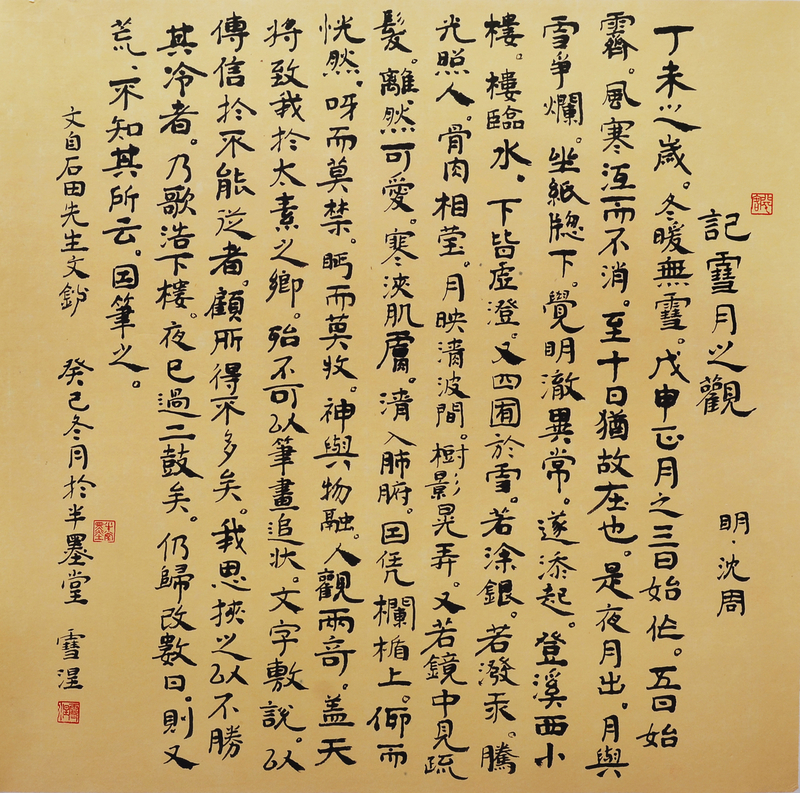 記雪月之觀
明·沈周
丁未之歲。冬暖無雪。戊申正月之三日始作。五日始
霽。風寒沍而不消。至十日猶故在也。是夜月出。月與
雪爭爛。坐紙牕下。覺明澈異常。遂添起。登溪西小
樓。樓臨水、下皆虛澄。又四囿於雪。若涂銀。若潑汞。騰
光照人。骨肉相莹。月映清波間。樹影晃弄。又若鏡中見疏
髮。離然可愛。寒浹肌膚。清入肺腑。因凭欄楯上。仰而
恍然。呀而莫禁。眄而莫收。神與物融。人觀兩奇。盖天
将致我於太素之鄉。殆不可以筆畫追状。文字敷說。以
傳信於不能從者。顧所得不多矣。我思挾之以不勝
其冷者。乃歌浩下樓。夜已過二鼓矣。仍歸改數日。則又
荒、不知其所云。因筆之。
文自石田先生文鈔 癸己冬月於半墨堂 雪涅